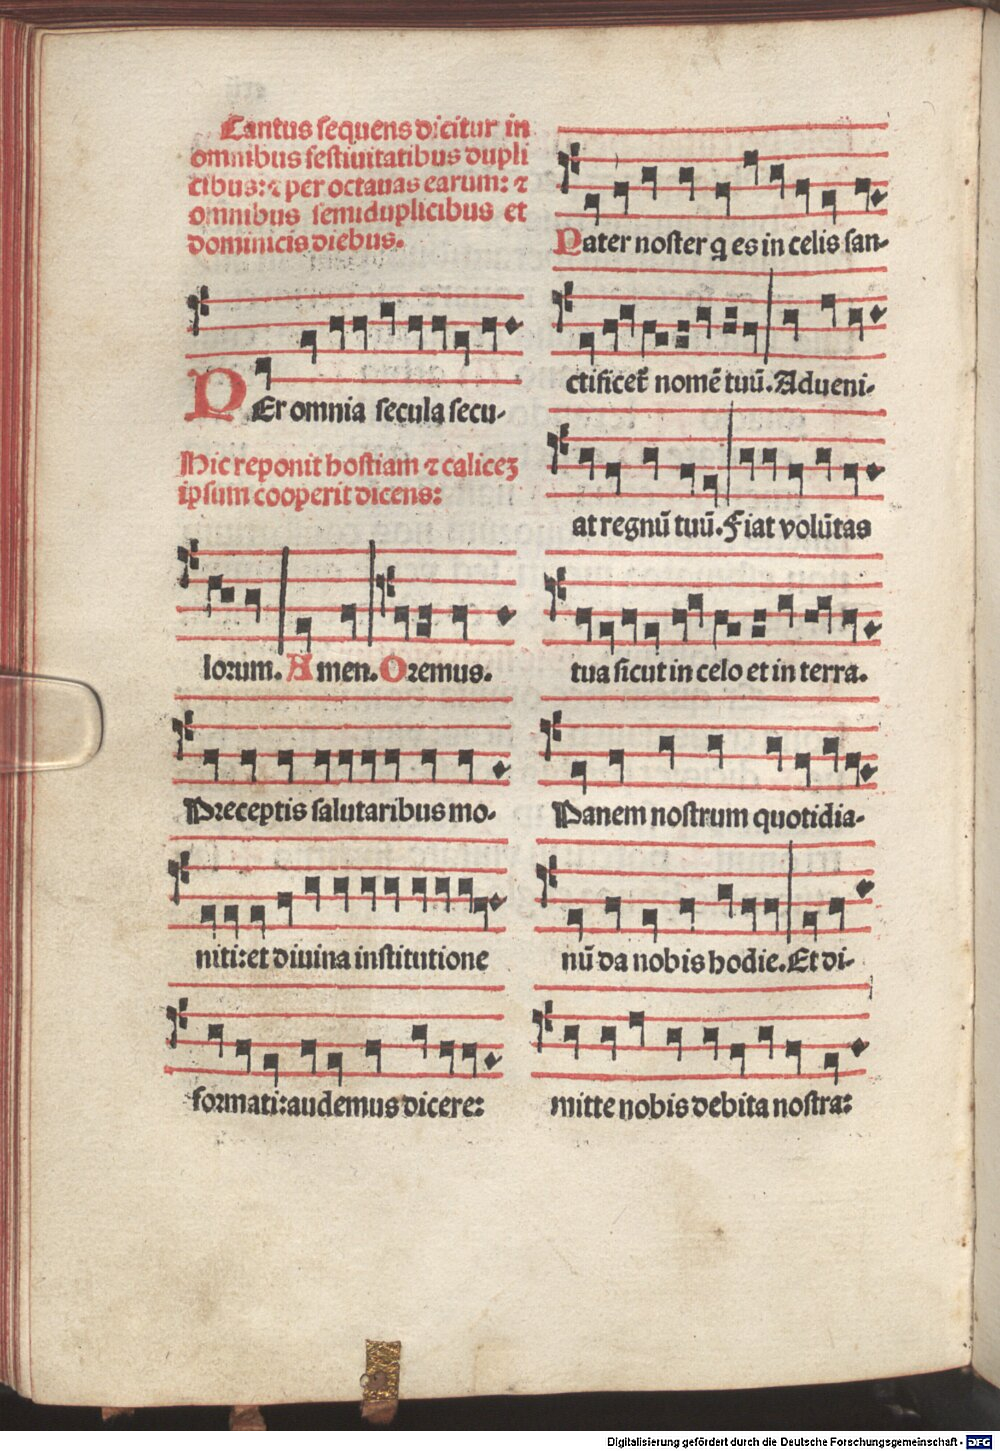 Cantus sequens dicitur in
omnibus festiuitatibus dupli
cibus: ⁊ per octauas earum: ⁊
omnibus semiduplicibus et
dominicis diebus.
PEr omnia secula secu-
Hic reponit hostiam ⁊ caliceꝫ
ipsum cooperit dicens:
lorum. Amen. Oremus.
Preceptis salutaribus mo-
niti: et diuina institutione
formati: audemus dicere:
Pater noster q es in celis san-
ctificet᷑ nomē tuū. Adueni-
at regnū tuū. Fiat volūtas
tua sicut in celo et in terra.
Panem nostrum quotidia-
nū da nobis hodie. Et di-
mitte nobis debita nostra:
Digitalisierung gefördert durch die Deutsche Forschungsgemeinschaft - DFG